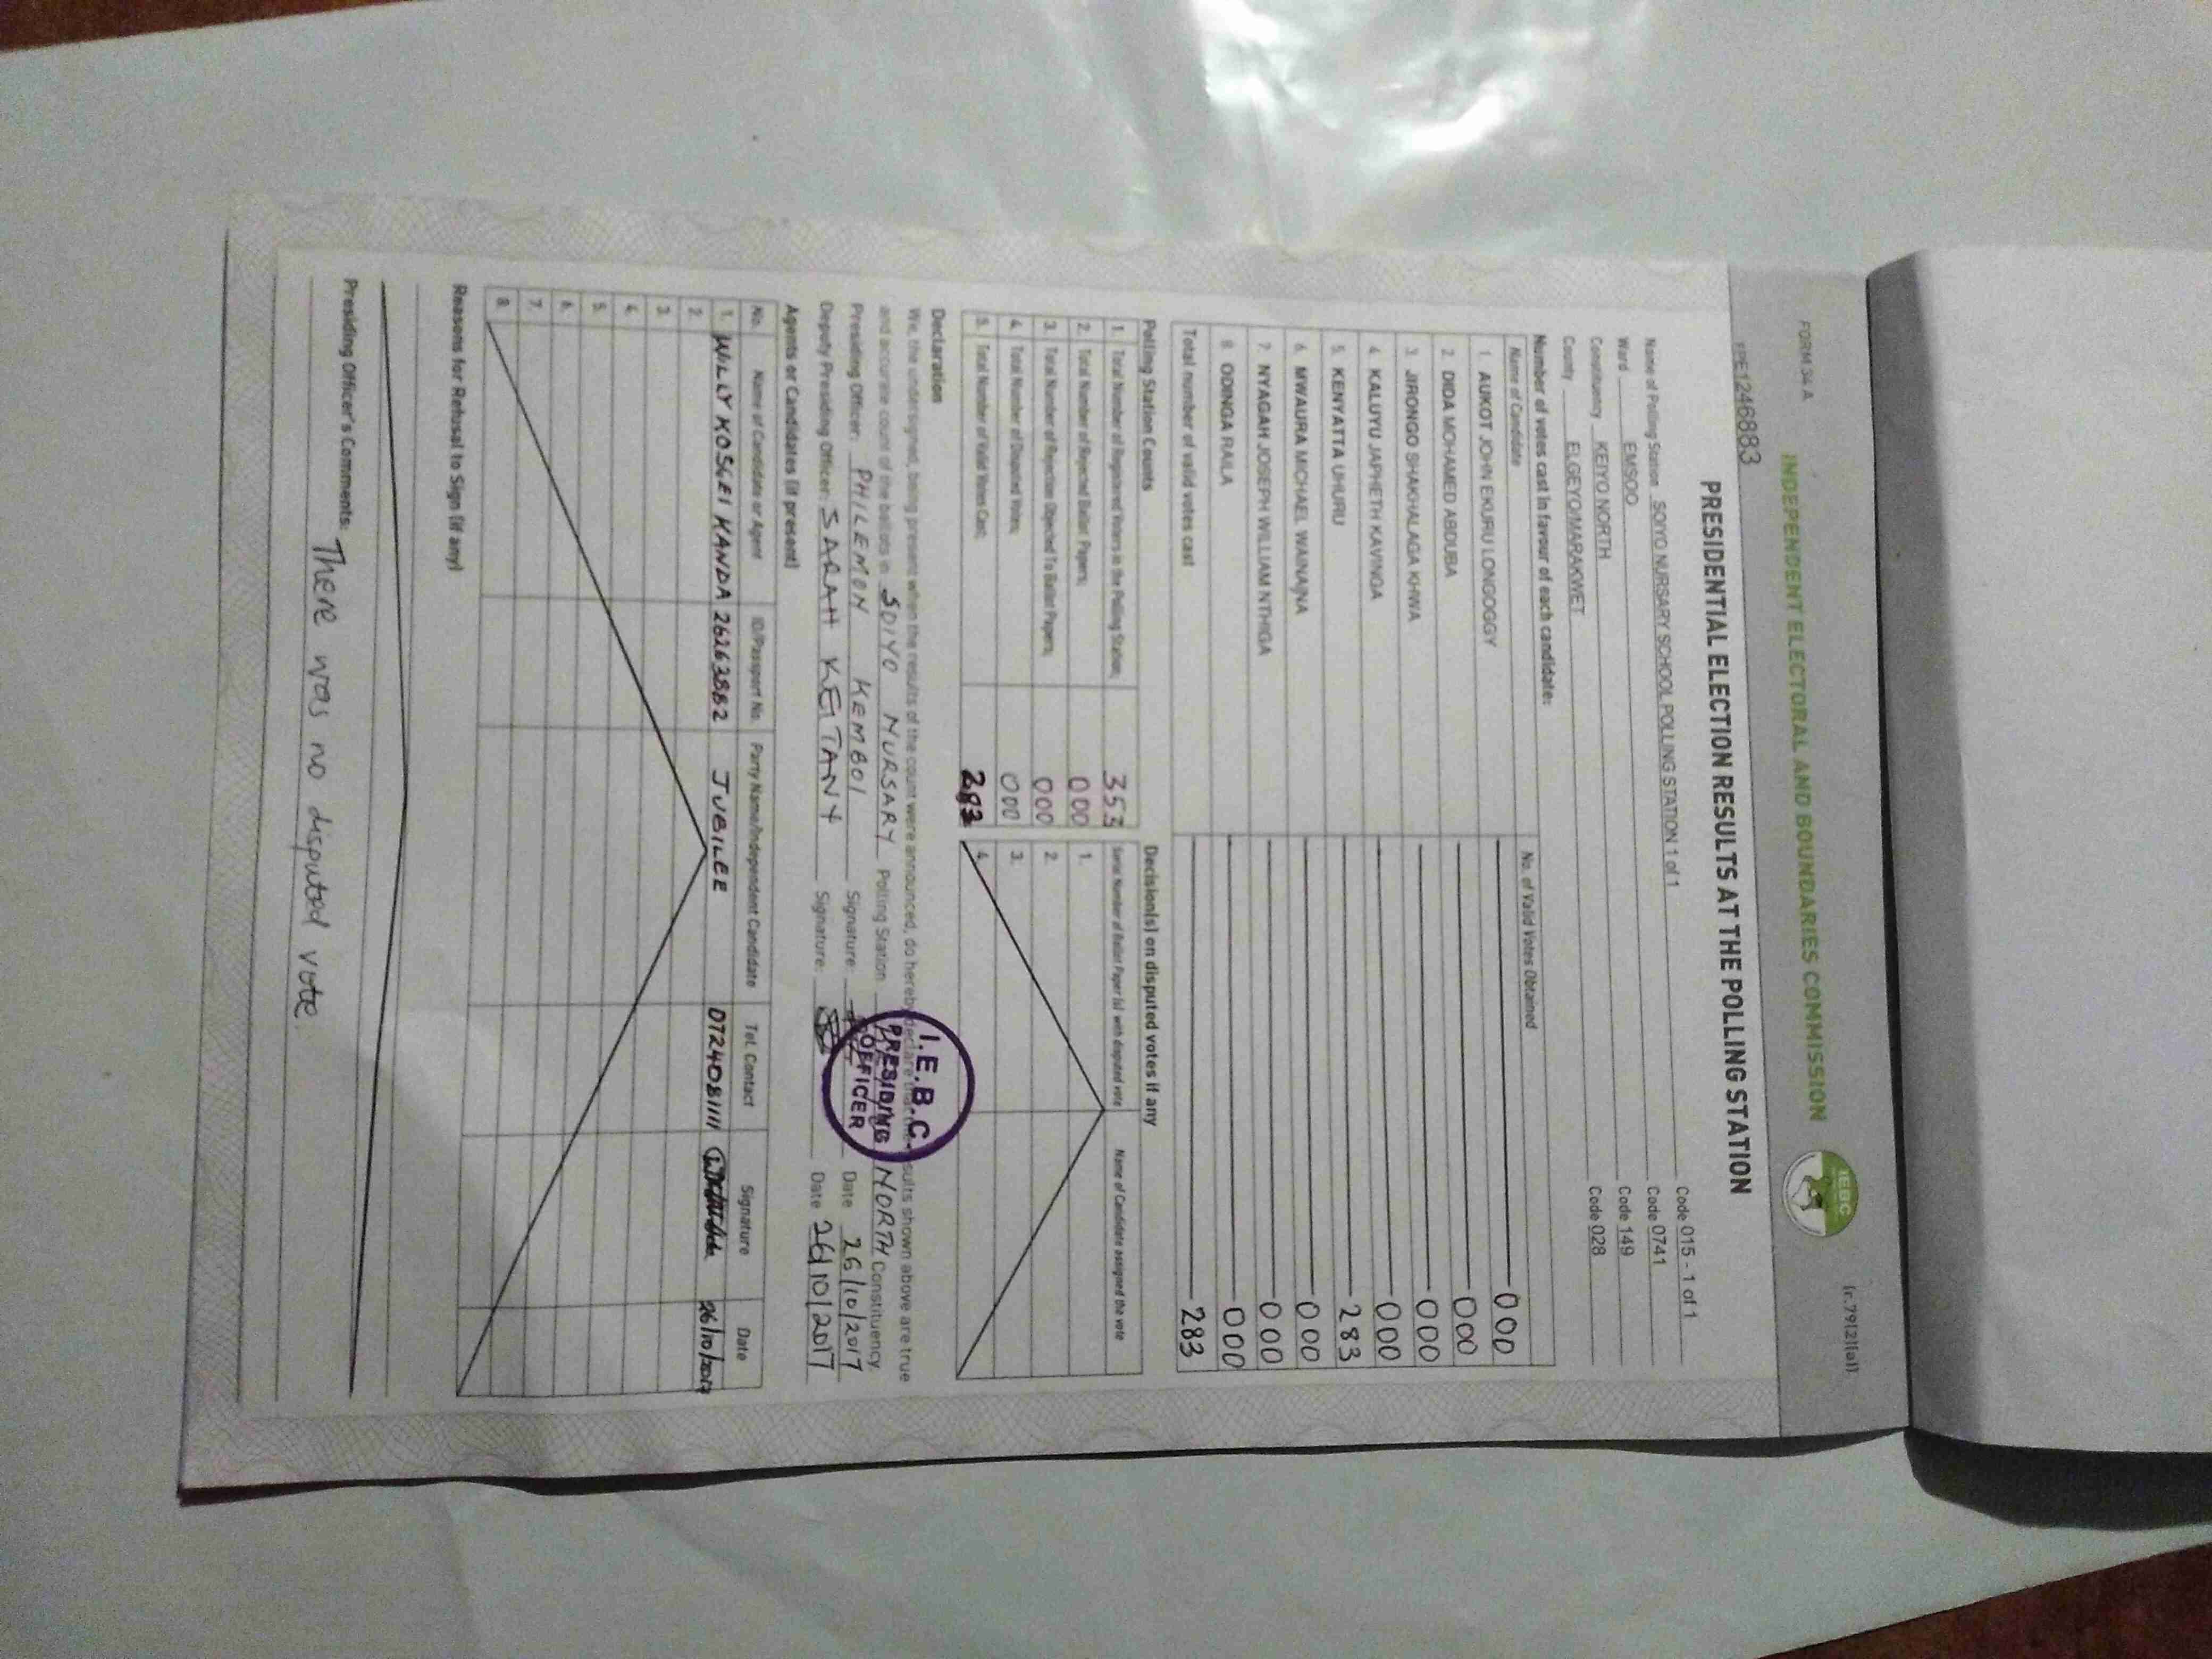 FORM 34 A
(r.79(2)(a))
INDEPENDENT ELECTORAL AND BOUNDARIES COMMISSION
IEBC
1246883
PRESIDENTIAL ELECTION RESULTS AT THE POLLING STATION
Name of Polling Station SOIYO NURSARY SCHOOL POLLING STATION 1 of 1 Code 015 - 1 of 1
Ward EMSOO Code 0741
Constituency KEIYO NORTH Code 149
County ELGEYO/MARAKWET Code 028
Number of votes cast in favour of each candidate:
Name of Candidate No. of Valid Votes Obtained
1. AUKOT JOHN EKURU LONGOGGY 000
2. DIDA MOHAMED ABDUBA 000
3. JIRONGO SHAKHALAGA KHWA 000
4. KALUYU JAPHETH KAVINGA 000
5. KENYATTA UHURU 283
6. MWAURA MICHAEL WAINAINA 000
7. NYAGAH JOSEPH WILLIAM NTHIGA 000
8. ODINGA RAILA 000
Total number of valid votes cast 283
Polling Station Counts
1. Total Number of Registered Voters in the Polling Station; 353
2. Total Number of Rejected Ballot Papers; 000
3. Total Number of Rejection Objected To Ballot Papers; 000
4. Total Number of Disputed Votes; 000
5. Total Number of Valid Votes Cast; 283
Decision(s) on disputed votes if any
Serial Number of Ballot Paper (s) with disputed vote Name of Candidate assigned the vote
1.
2.
3.
4.
Declaration
We, the undersigned, being present when the results of the count were announced, do hereby declare that the results shown above are true
and accurate count of the ballots in SOIYO NURSARY Polling Station NORTH Constituency.
Presiding Officer: PHILEMON KEMBOI Signature: Date 26/10/2017
Deputy Presiding Officer: SARAH KEITANY Signature: Date 26/10/2017
I.E.B.C
PRESIDING
OFFICER
Agents or Candidates (if present)
No. Name of Candidate or Agent ID/Passport No. Party Name/Independent Candidate Tel. Contact Signature Date
1. WILLY KOSGEI KANDA 26263882 JUBILEE 0724081111 26/10/2017
2.
3.
4.
5.
6.
7.
8.
Reasons for Refusal to Sign (if any)
Presiding Officer's Comments: There was no disputed vote.